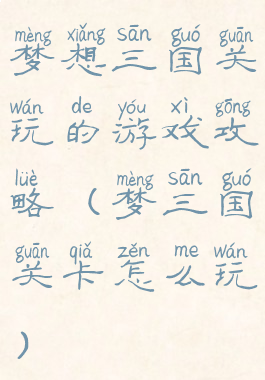 mèng xiǎng sān guó guān
梦想三国关
wán de yóu xì gōng
玩的游戏攻
lüè mèng sān guó
略（梦三国
guān qiǎ zěn me wán
关卡怎么玩
）